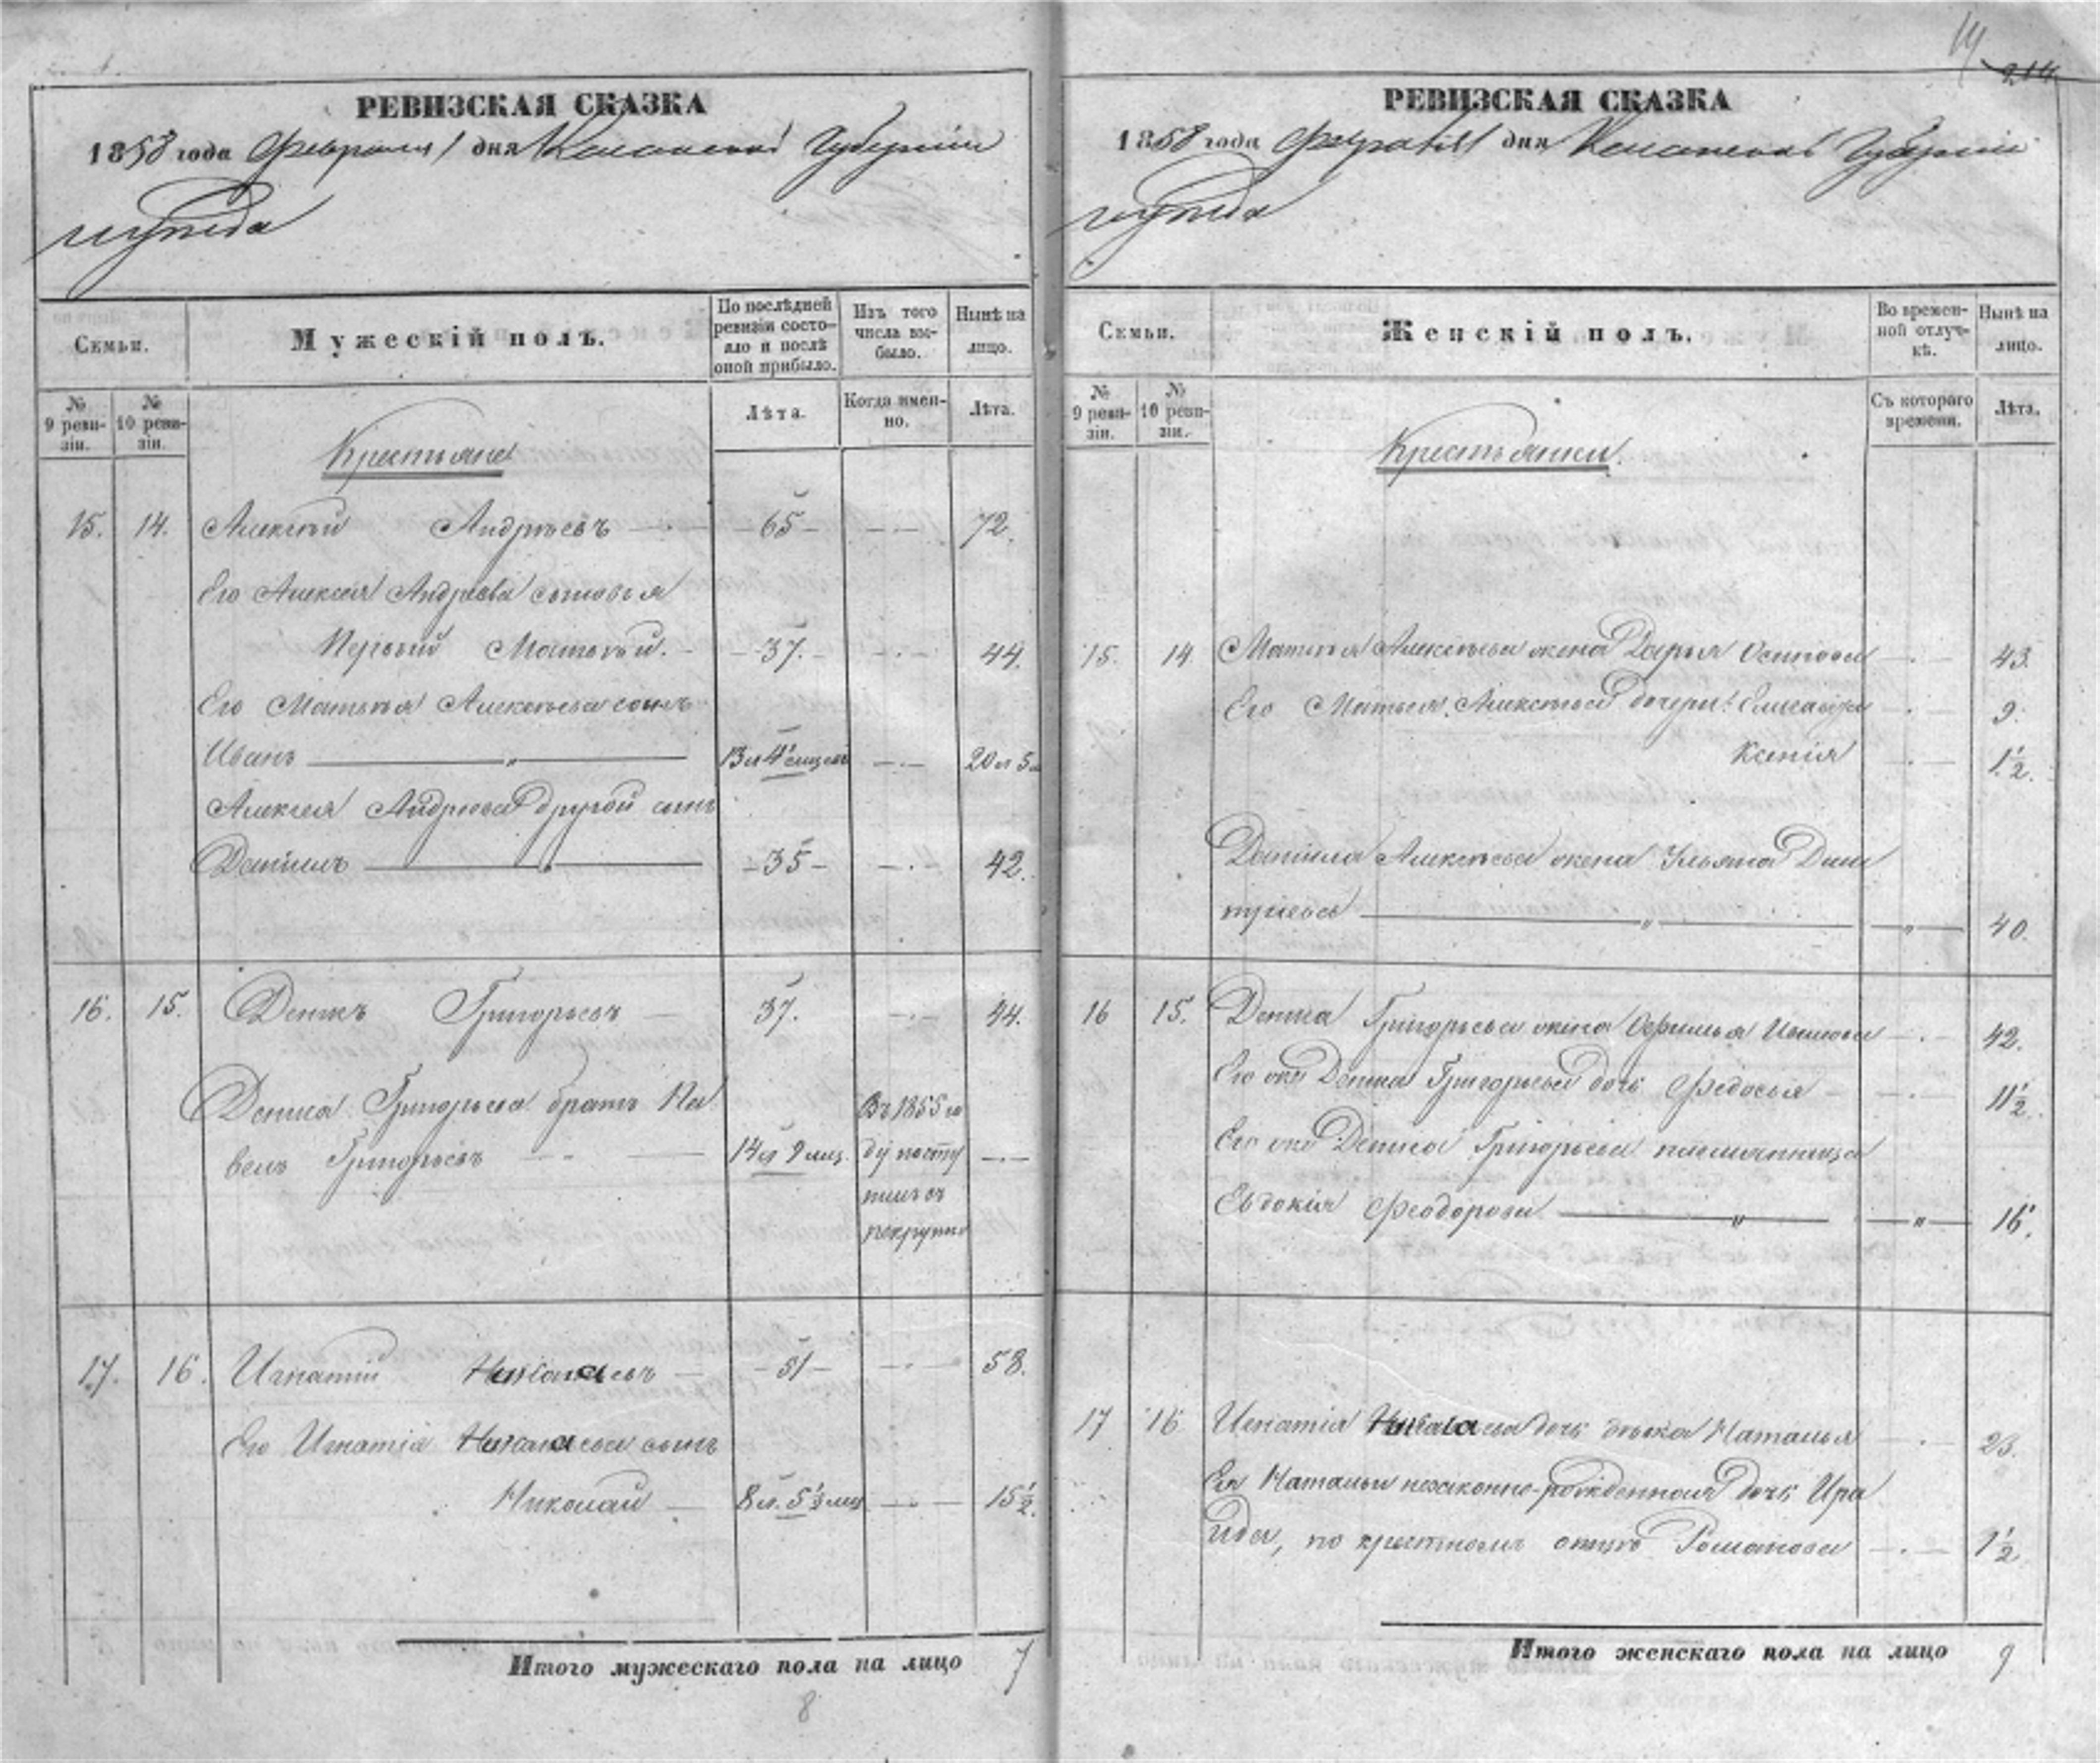 РЕВИЗСКАЯ СКАЗКА
1858 года Февраля дня Губерніи
уѣзда
Семьи.
Мужескій полъ.
По послѣдней ревизіи состояло и послѣ оной прибыло.
Изъ того числа выбыло.
Нынѣ на лицо.
№ 9 ревизіи.
№ 10 ревизіи.
Лѣта.
Когда именно.
Лѣта.
Крестьяне
15. 14. Алексѣй Андрѣевъ 65 72.
Его Алексѣя Андрѣева сыновья
Первый Матвѣй. 37. 44.
Его Матвѣя Алексѣева сынъ
Иванъ 13 л 4 20 л 5
Алексѣя Андрѣева другой сынъ
Данiилъ 35 42.
16. 15. Денисъ Григорьевъ 37. 44.
Дениса Григорьева братъ Па
велъ Григорьевъ 14 л 9 мец. Въ 1855 го
ду посту
пилъ въ
рекруты
17. 16. Игнатій 51 58.
Его Игнатія сынъ
Николай 8 л. 5 ½ мец 15 ½.
Итого мужескаго пола на лицо 7
8
14
214
РЕВИЗСКАЯ СКАЗКА
1858 года дня Губерніи
уѣзда
Семьи.
Женскій полъ.
Во временной отлучкѣ.
Нынѣ на лицо.
№ 9 ревизіи.
№ 10 ревизіи.
Съ котораго времени.
Лѣта.
Крестьянки.
15. 14 Матвѣя Алексѣева жена Дарья Осипова 43.
Его Матвѣя Алексѣева дочери: 9.
Ксенія 1 ½.
Данiила Алексѣева жена Ульяна Дми
тріева 40.
16 15. Дениса Григорьева жена Ивано̀ва 42.
Его же Дениса Григорьева дочь Федосья 11 ½.
Его же Дениса Григорьева племянница
Евдокія Феодорова 16.
17 16 Игнатія дочь дѣвка Наталья 23.
Ея Натальи незаконно-рожденная дочь Ира
ида, по крестномъ отцѣ Романова 1 ½
Итого женскаго пола на лицо 9